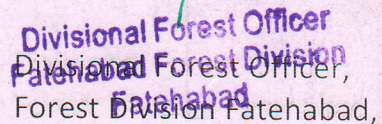 Divisional Forest Officer
Fatehabad Forest Division
Fatehabad
Divisional Forest Officer,
Forest Division Fatehabad,